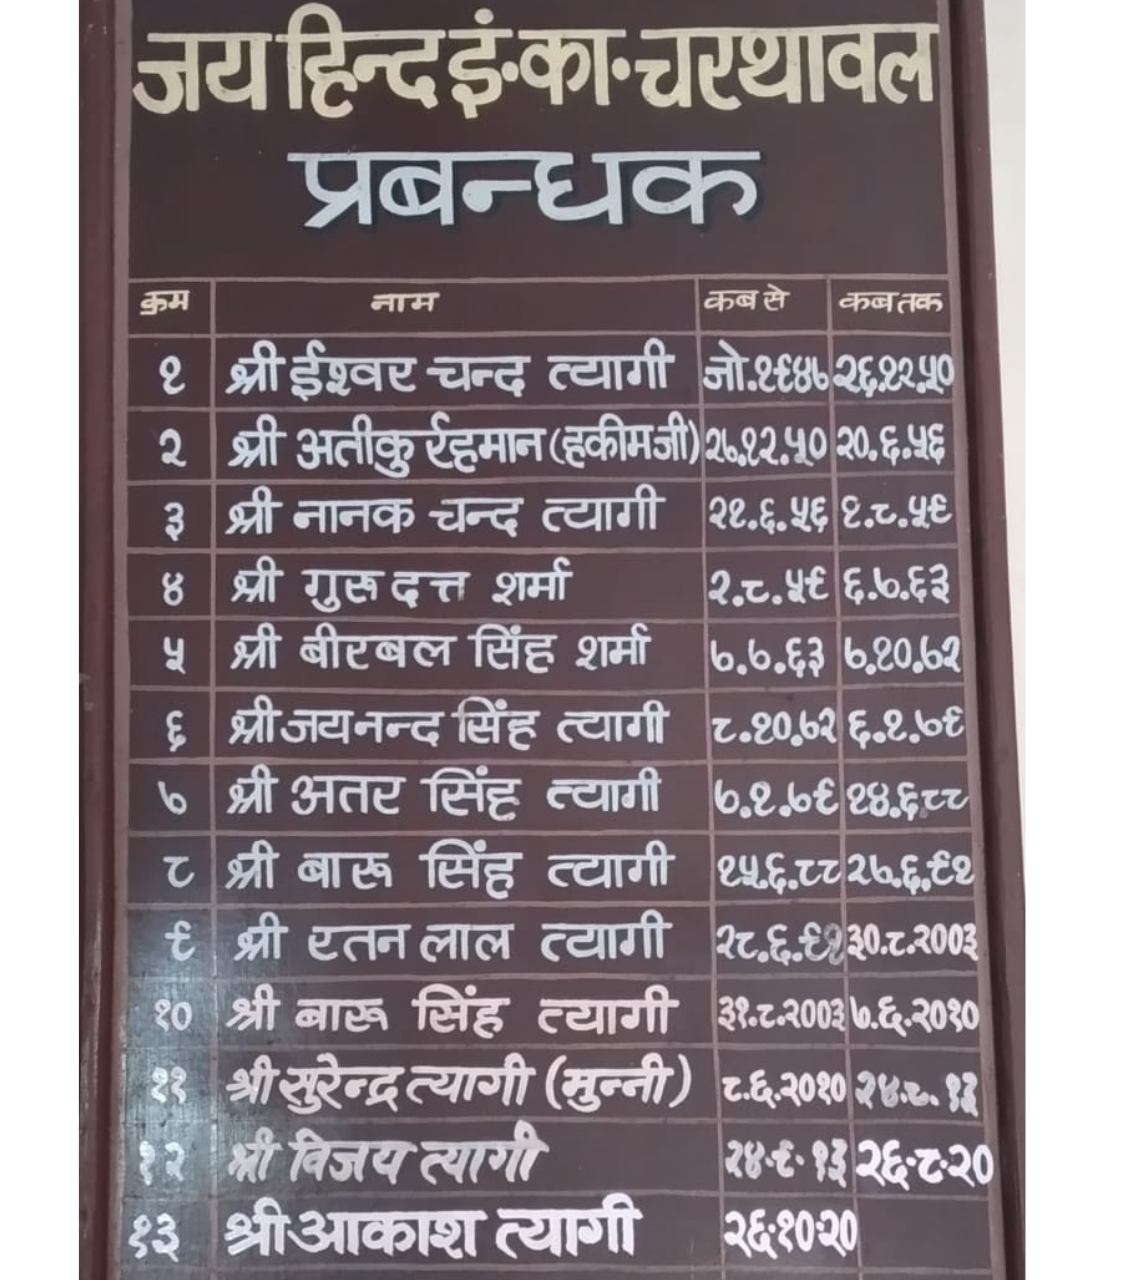 जय हिन्द इं·का·चरथावल
प्रबन्धक
क्रम नाम कब से कब तक
१ श्री ईश्वर चन्द त्यागी जो.१९४७ २६.१२.५०
२ श्री अतीकु र्रहमान (हकीम जी) २७.१२.५० २०.६.५६
३ श्री नानक चन्द त्यागी २१.६.५६ १.८.५९
४ श्री गुरू दत्त शर्मा २.८.५९ ६.७.६३
५ श्री बीरबल सिंह शर्मा ७.७.६३ ७.१०.७२
६ श्री जयनन्द सिंह त्यागी ८.१०.७२ ६.१.७९
७ श्री अतर सिंह त्यागी ७.१.७९ १४.६.८८
८ श्री बारू सिंह त्यागी १५.६.८८ २७.६.९१
९ श्री रतन लाल त्यागी २८.६.९१ ३०.८.२००३
१० श्री बारू सिंह त्यागी ३१.८.२००३ ७.६.२०१०
११ श्री सुरेन्द्र त्यागी (मुन्नी) ८.६.२०१०
१२ श्री विजय त्यागी २४·९·१३ २६·८·२०
१३ श्री आकाश त्यागी २६·१०·२०